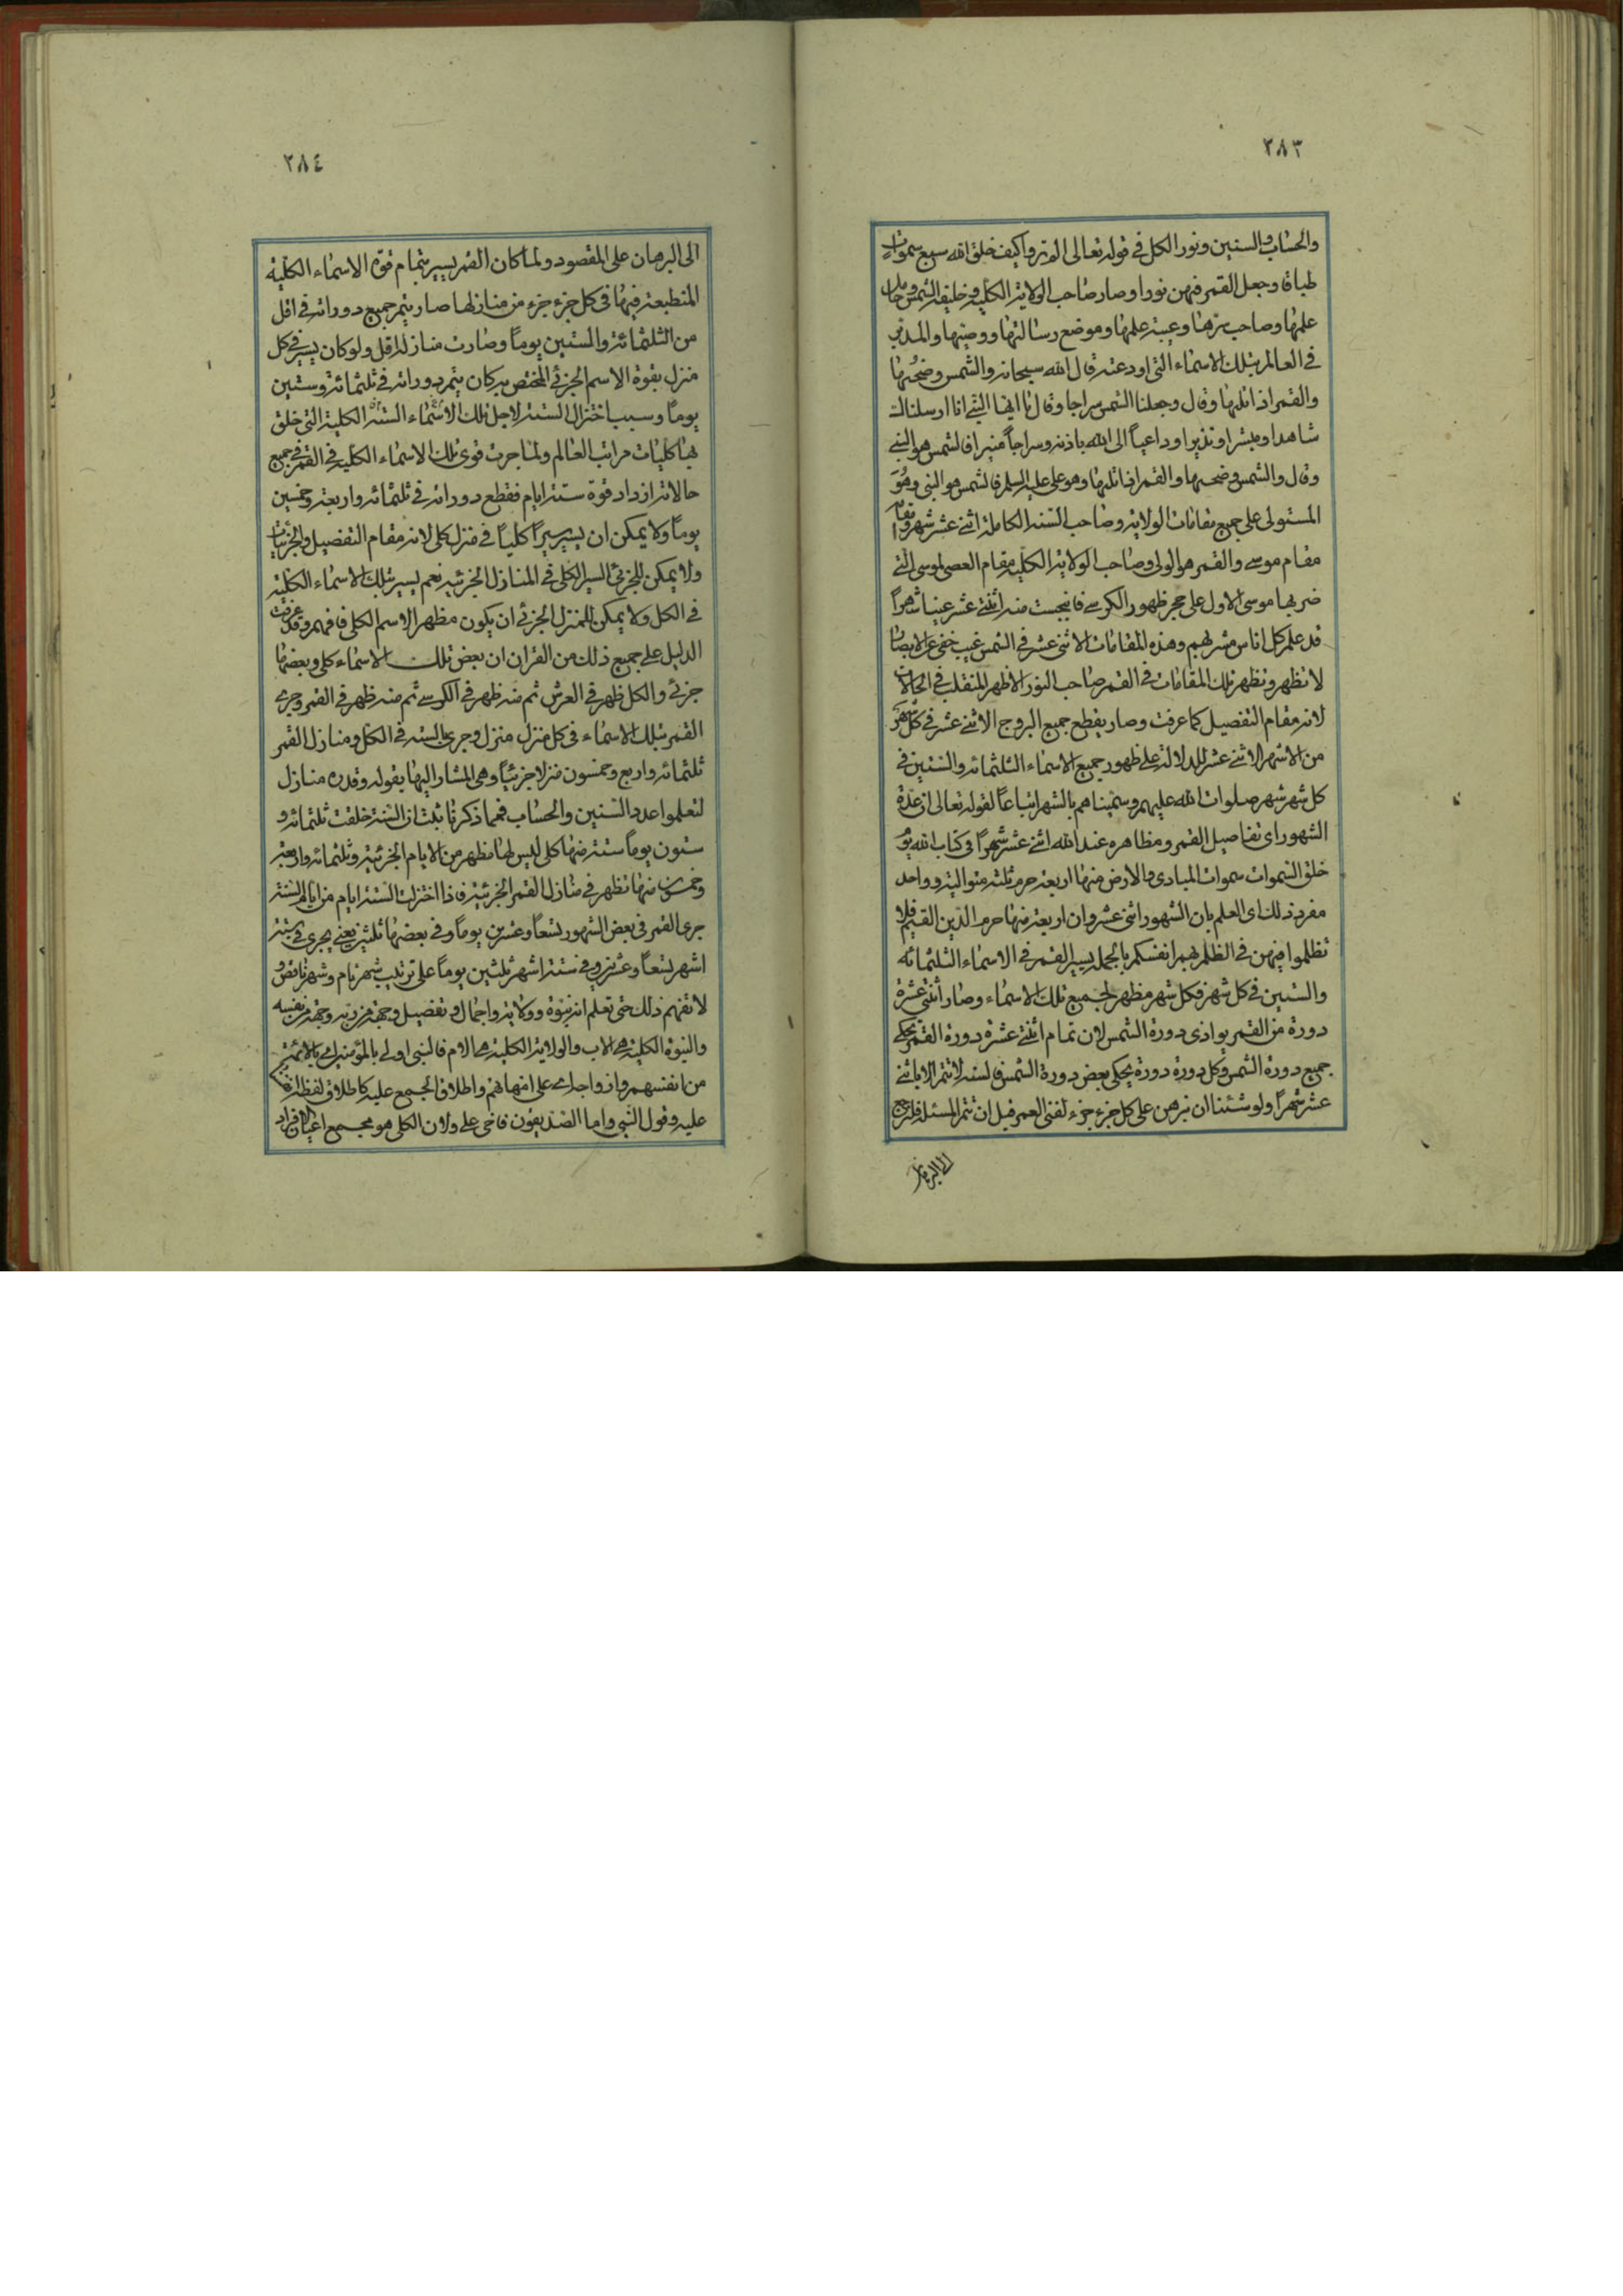 ٢٨٣
والحساب والسنين ونور الكل في قوله تعالى الم تروا كيف خلق الله سبع سموات
طباقا وجعل القمر فيهن نورا وصار صاحب الولاية الكلية وخليفة الشمس وحامل
علمها وصاحب سرها وعيبة علمها وموضع رسالتها ووصيها والمدبر
في العالم بتلك الاسماء التي اودعته قال الله سبحانه والشمس وضحيها
والقمر اذا تليها وقال وجعلنا الشمس سراجا وقال يا ايها النبي انا ارسلناك
شاهدا ومبشرا ونذيرا وداعياً الى الله باذنه وسراجاً منيرا فالشمس هو النبي
وقال والشمس وضحيها والقمر اذا تليها وهو علي عليه السلم فالشمس هو النبي وهو
المستولي على جميع مقامات الولاية وصاحب السنه الكاملة اثني عشر شهر ومقامه
مقام موسى والقمر هو الولي وصاحب الولاية الكلية مقام العصى لموسى التي
ضرب بها موسى الاول على حجر ظهور الكرسي فانبجست منه اثنتي عشر عينا شهراً
قد علم كل اناس مشربهم وهذه المقامات الاثنى عشر في الشمس غيب خفي عن الابصار
لا تظهر وتظهر تلك المقامات في القمر صاحب النور الاظهر المنقلب في الحالات
لانه مقام التفصيل كما عرفت وصار يقطع جميع البروج الاثني عشر في كل شهر
من الاشهر الاثني عشر للدلالة على ظهور جميع الاسماء الثلثمائه والستين في
كل شهر شهر صلوات الله عليهم وسميناهم بالشهر اتباعاً لقوله تعالى ان عدة
الشهور اي تفاصيل القمر ومظاهره عند الله اثني عشر شهراً في كتاب الله يوم
خلق السموات سموات المبادي والارض منها اربعة حرم ثلثه متواليه وواحد
مفرد ذلك اي العلم بان الشهور اثني عشر وان اربعة منها حرم الدين القيم فلا
تظلموا فيهن في الظلم بهم انفسكم بالجمله يسير القمر في الاسماء الثلثمائه
والستين في كل شهر فكل شهر مظهر لجميع تلك الاسماء وصار اثنتي عشرة
دورة من القمر يوازي دورة الشمس لان تمام اثنتي عشرة دورة القمر يحكي
جميع دورة الشمس وكل دورة دورة يحكي بعض دورة الشمس فالسنه لا تتم الا باثني
عشر شهراً ولو شئنا ان نبرهن على كل جزء جزء لفني العمر قبل ان تتم المسئلة فلنرجع
الى البرهان
٢٨٤
الى البرهان على المقصود ولما كان القمر يسير بتمام قوة الاسماء الكلية
المنطبعة فيها في كل جزء جزء من منازلها صار يتم جميع دوراته في اقل
من الثلثمائة والستين يوماً وصارت منازله اقل ولو كان يسير في كل
منزل بقوة الاسم الجزئي المختص به كان يتم دوراته في ثلثمائة وستين
يوماً وسبب اختزال الستة لاجل تلك الاسماء الستة الكلية التي خلق
بها كليات مراتب العالم ولما جرت قوى تلك الاسماء الكلية في القمر في جميع
حالاته ازداد قوة ستة ايام فقطع دوراته في ثلثمائه واربعة وخمسين
يوماً ولا يمكن ان يسير سيراً كلياً في منزل كلي لانه مقام التفصيل والجزئيات
ولا يمكن للجزئي السير الكلي في المنازل الجزئيه نعم يسير بتلك الاسماء الكلية
في الكل ولا يمكن للمنزل الجزئي ان يكون مظهر الاسم الكلي فافهم وقد عرفت
الدليل على جميع ذلك من القران ان بعض تلك الاسماء كلي وبعضها
جزئي والكل ظهر في العرش ثم منه ظهر في الكرسي ثم منه ظهر في القمر وجرى
القمر بتلك الاسماء في كل منزل منزل وجرى بالسته في الكل ومنازل القمر
ثلثمائه واربع وخمسون منزلا جزئياً وهي المشار اليها بقوله وقدره منازل
لتعلموا عدد السنين والحساب فمما ذكرنا ثبت ان السنة خلقت ثلثمائه و
ستون يوماً ستة منها كلي ليس لها مظهر من الايام الجزئية وثلثمائه واربعة
وخمسون منها تظهر في منازل القمر الجزئية فاذا اختزلت الستة ايام من ايام السنة
جرى القمر في بعض الشهور تسعاً وعشرين يوماً وفي بعضها ثلثين يعني يجري في ستة
اشهر تسعاً وعشرين وفي ستة اشهر ثلثين يوماً على ترتيب شهر تام وشهر ناقص و
لا تفهم ذلك حتى تعلم انه نبوة وولاية واجمال وتفصيل وجهة من ربه وجهة من نفسه
والنبوة الكلية هي الاب والولاية الكلية هي الام فالنبي اولى بالمؤمنين اي بالائمة
من انفسهم وازواجه اي علي امهاتهم واطلاق الجمع عليه كاطلاق لفظ
عليه وقول النبي واما الصديقون فاخي علي ولان الكلي هو مجمع اعيان الافراد